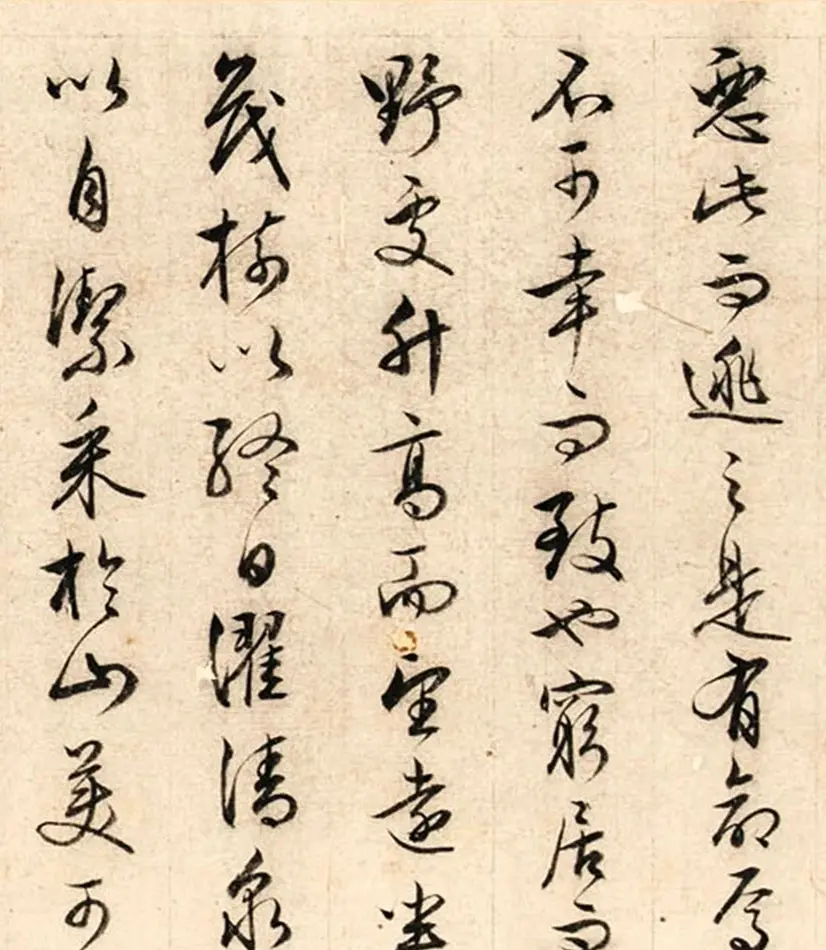 惡此而逃之是有命焉
不可幸而致也窮居而
野處升高而望遠坐
茂樹以終日濯清泉
以自潔采於山美可